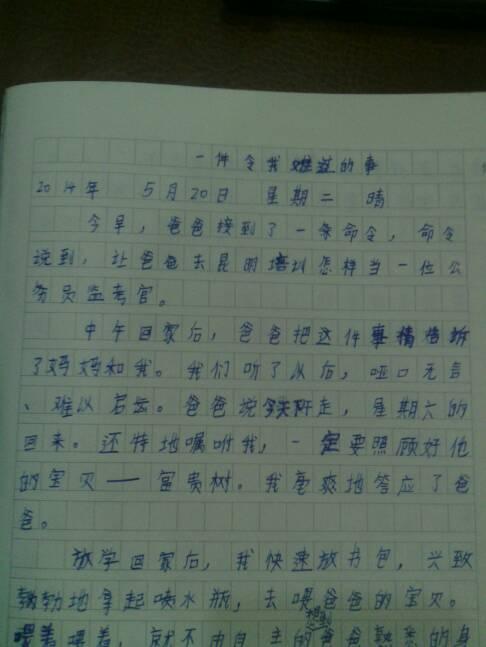 一件令我难过的事
2014年 5月20日 星期二 晴
今早，爸爸接到了一条命令，命令
说到，让爸爸去昆明培训怎样当一位公
务员监考官。
中午回家后，爸爸把这件事情告诉
了妈妈和我。我们听了以后，哑口无言
、难以若云。爸爸说今天下午走，星期六的
回来。还特地嘱咐我，一定要照顾好他
的宝贝——富贵树。我毫爽地答应了爸
爸。
放学回家后，我快速放书包，兴致
勃勃地拿起喷水瓶，去喂爸爸的宝贝。
喂着喂着，就不由自主的想到爸爸熟悉的身